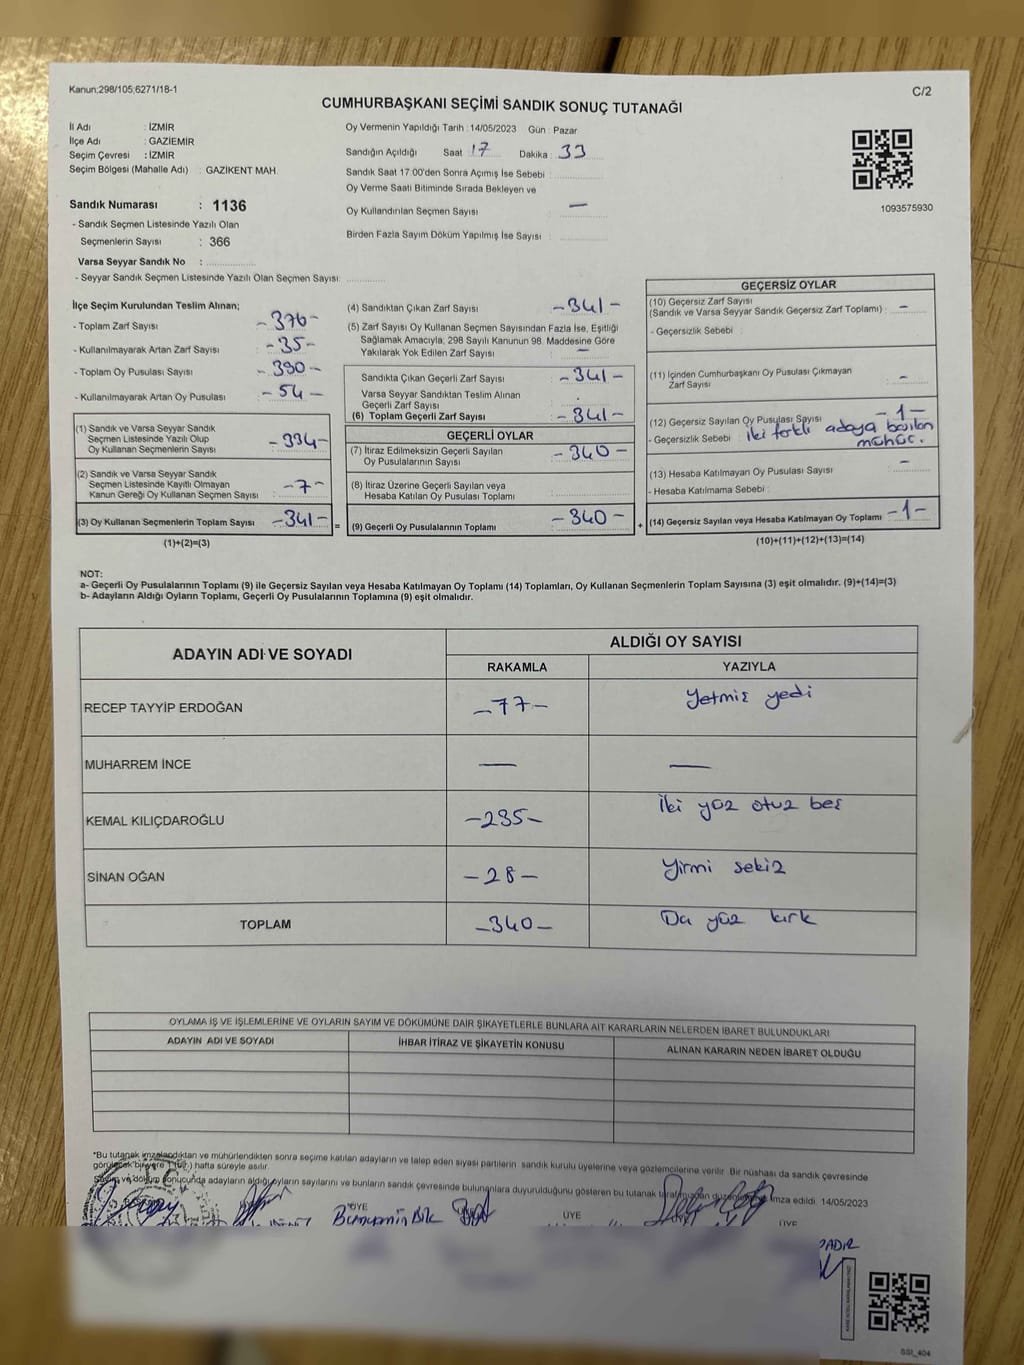 Kanun;298/105;6271/18-1
C/2
CUMHURBAŞKANI SEÇİMİ SANDIK SONUÇ TUTANAĞI
İl Adı : İZMİR
İlçe Adı : GAZİEMİR
Seçim Çevresi : İZMİR
Seçim Bölgesi (Mahalle Adı) : GAZİKENT MAH.
Sandık Numarası : 1136
- Sandık Seçmen Listesinde Yazılı Olan
Seçmenlerin Sayısı : 366
Varsa Seyyar Sandık No :
- Seyyar Sandık Seçmen Listesinde Yazılı Olan Seçmen Sayısı:
Oy Vermenin Yapıldığı Tarih : 14/05/2023 Gün : Pazar
Sandığın Açıldığı Saat 17 Dakika : 33
Sandık Saat 17.00'den Sonra Açımış İse Sebebi :
Oy Verme Saati Bitiminde Sırada Bekleyen ve
Oy Kullandırılan Seçmen Sayısı —
Birden Fazla Sayım Döküm Yapılmış İse Sayısı :
1093575930
İlçe Seçim Kurulundan Teslim Alınan;
- Toplam Zarf Sayısı -376-
- Kullanılmayarak Artan Zarf Sayısı -35-
- Toplam Oy Pusulası Sayısı -390-
- Kullanılmayarak Artan Oy Pusulası -54-
(1) Sandık ve Varsa Seyyar Sandık
Seçmen Listesinde Yazılı Olup
Oy Kullanan Seçmenlerin Sayısı -334-
(2) Sandık ve Varsa Seyyar Sandık
Seçmen Listesinde Kayıtlı Olmayan
Kanun Gereği Oy Kullanan Seçmen Sayısı -7-
(3) Oy Kullanan Seçmenlerin Toplam Sayısı -341- =
(1)+(2)=(3)
(4) Sandıktan Çıkan Zarf Sayısı -341-
(5) Zarf Sayısı Oy Kullanan Seçmen Sayısından Fazla İse, Eşitliği
Sağlamak Amacıyla; 298 Sayılı Kanunun 98. Maddesine Göre
Yakılarak Yok Edilen Zarf Sayısı —
Sandıkta Çıkan Geçerli Zarf Sayısı -341-
Varsa Seyyar Sandıktan Teslim Alınan
Geçerli Zarf Sayısı
(6) Toplam Geçerli Zarf Sayısı -341-
GEÇERLİ OYLAR
(7) İtiraz Edilmeksizin Geçerli Sayılan
Oy Pusulalarının Sayısı -340-
(8) İtiraz Üzerine Geçerli Sayılan veya
Hesaba Katılan Oy Pusulası Toplamı
(9) Geçerli Oy Pusulalarının Toplamı -340- +
GEÇERSİZ OYLAR
(10) Geçersiz Zarf Sayısı
(Sandık ve Varsa Seyyar Sandık Geçersiz Zarf Toplamı) : -
- Geçersizlik Sebebi :
(11) İçinden Cumhurbaşkanı Oy Pusulası Çıkmayan
Zarf Sayısı -
(12) Geçersiz Sayılan Oy Pusulası Sayısı -1-
- Geçersizlik Sebebi : iki farklı adaya basılan
mühür.
(13) Hesaba Katılmayan Oy Pusulası Sayısı -
- Hesaba Katılmama Sebebi :
(14) Geçersiz Sayılan veya Hesaba Katılmayan Oy Toplamı -1-
(10)+(11)+(12)+(13)=(14)
NOT:
a- Geçerli Oy Pusulalarının Toplamı (9) ile Geçersiz Sayılan veya Hesaba Katılmayan Oy Toplamı (14) Toplamları, Oy Kullanan Seçmenlerin Toplam Sayısına (3) eşit olmalıdır. (9)+(14)=(3)
b- Adayların Aldığı Oyların Toplamı, Geçerli Oy Pusulalarının Toplamına (9) eşit olmalıdır.
ADAYIN ADI VE SOYADI ALDIĞI OY SAYISI
RAKAMLA YAZIYLA
RECEP TAYYİP ERDOĞAN -77- Yetmiş yedi
MUHARREM İNCE — —
KEMAL KILIÇDAROĞLU -235- İki yüz otuz beş
SİNAN OĞAN -28- Yirmi sekiz
TOPLAM -340- yüz kırk
OYLAMA İŞ VE İŞLEMLERİNE VE OYLARIN SAYIM VE DÖKÜMÜNE DAİR ŞİKAYETLERLE BUNLARA AİT KARARLARIN NELERDEN İBARET BULUNDUKLARI
ADAYIN ADI VE SOYADI İHBAR İTİRAZ VE ŞİKAYETİN KONUSU ALINAN KARARIN NEDEN İBARET OLDUĞU
*Bu tutanak imzalandıktan ve mühürlendikten sonra seçime katılan adayların ve talep eden siyasi partilerin sandık kurulu üyelerine veya gözlemcilerine verilir. Bir nüshası da sandık çevresinde
görülecek bir yere 1 hafta süreyle asılır.
Sayım ve döküm sonucunda adayların aldığı oyların sayılarını ve bunların sandık çevresinde bulunanlara duyurulduğunu gösteren bu tutanak imza edildi. 14/05/2023
ÜYE ÜYE ÜYE
SSI_404